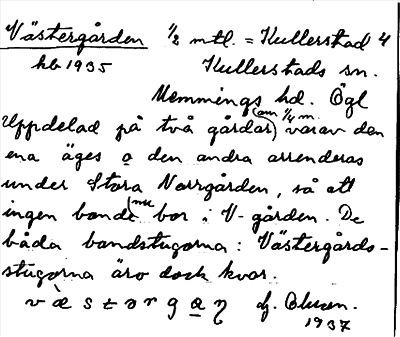 Västergården ½ mtl. = Kullerstad 4
hb 1935 Kullerstads sn.
Memmings hd. Ögl
Uppdelad på två gårdar (om ¼ m.) varav den
ena äges o den andra arrenderas
under Stora Norrgården, så att
ingen bonde nu bor i V-gården. De
båda bondstugorna: Västergårds-
stugorna äro dock kvar.
væstərgan
1937